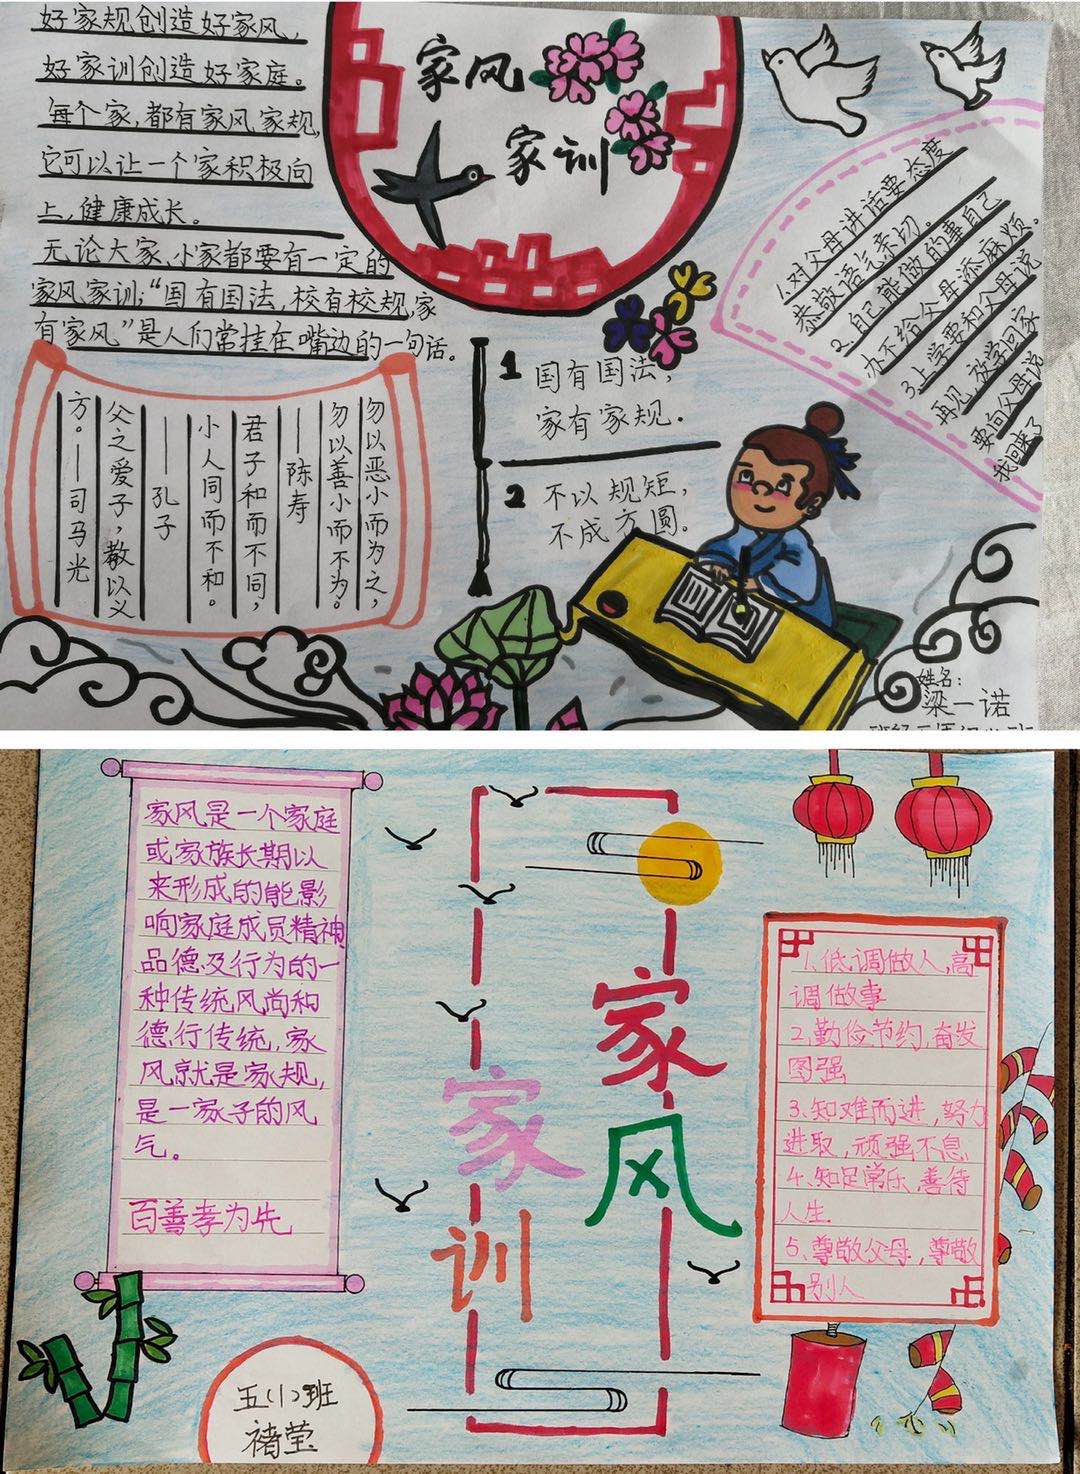 好家规创造好家风，
好家训创造好家庭。
每个家，都有家风家规，
它可以让一个家积极向
上，健康成长。
无论大家、小家都要有一定的
家风家训；“国有国法，校有校规，家
有家风”是人们常挂在嘴边的一句话。
家风
家训
1.对父母讲话要态度
恭敬语气亲切。
2.自己能做的事自己
办不给父母添麻烦。
3.上学要和父母说
再见，放学回家
要向父母说
我回来了
1 国有国法，
家有家规.
2 不以规矩，
不成方圆。
勿以恶小而为之，
勿以善小而不为。
——陈寿
君子和而不同，
小人同而不和。
——孔子
父之爱子，教以义
方。——司马光
姓名：
梁一诺
家风是一个家庭
或家族长期以
来形成的能影
响家庭成员精神、
品德及行为的一
种传统风尚和
德行传统，家
风就是家规，
是一家子的风
气。
百善孝为先
家风
家训
1.低调做人，高
调做事
2.勤俭节约，奋发
图强
3.知难而进，努力
进取，顽强不息
4.知足常乐，善待
人生
5.尊敬父母，尊敬
别人
五（1）班
褚莹